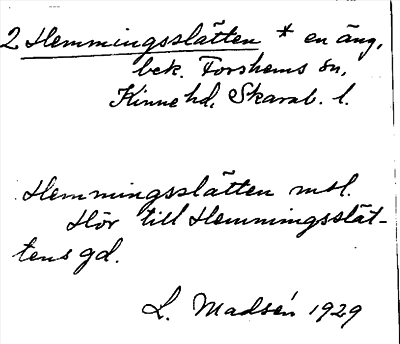 2 Hemmingsslätten * en äng,
bek. Forshems sn,
Kinne hd, Skarab. l.
Hemmingsslätten mbl.
Hör till Hemmingsslät-
tens gd.
L. Madsén 1929